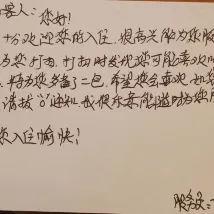 客人：
您好！
十分欢迎您的入住，很高兴能为您服
为您打扫，打扫时发现您可能喜欢
特为您多备了二包，希望您会喜欢，如您
请拨“0”通知，我很乐意能随时为您
您入住愉快！
服务员：